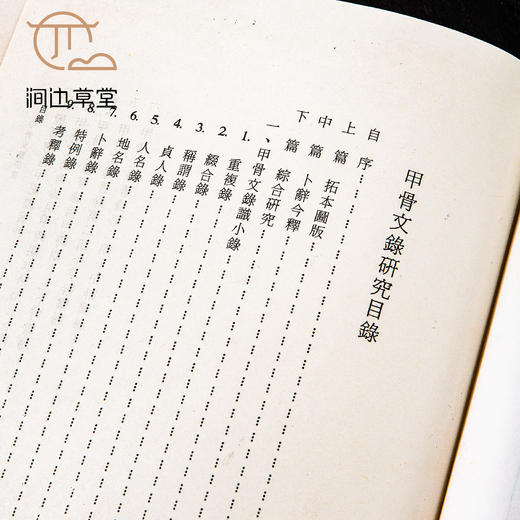 涧边草堂
甲骨文錄研究目錄
自序
上篇 拓本圖版
中篇 卜辭今釋
下篇 綜合研究
一、甲骨文錄識小錄
1. 重複錄
2. 綴合錄
3. 稱謂錄
4. 貞人錄
5. 人名錄
6. 地名錄
7. 卜辭錄
8. 特例錄
9. 考釋錄
目錄